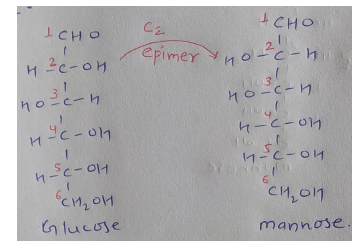 1 CHO
H - 2 C - OH
HO - 3 C - H
H - 4 C - OH
H - 5 C - OH
6 CH2OH
Glucose
C2
epimer
1 CHO
HO - 2 C - H
HO - 3 C - H
H - 4 C - OH
H - 5 C - OH
6 CH2OH
mannose.